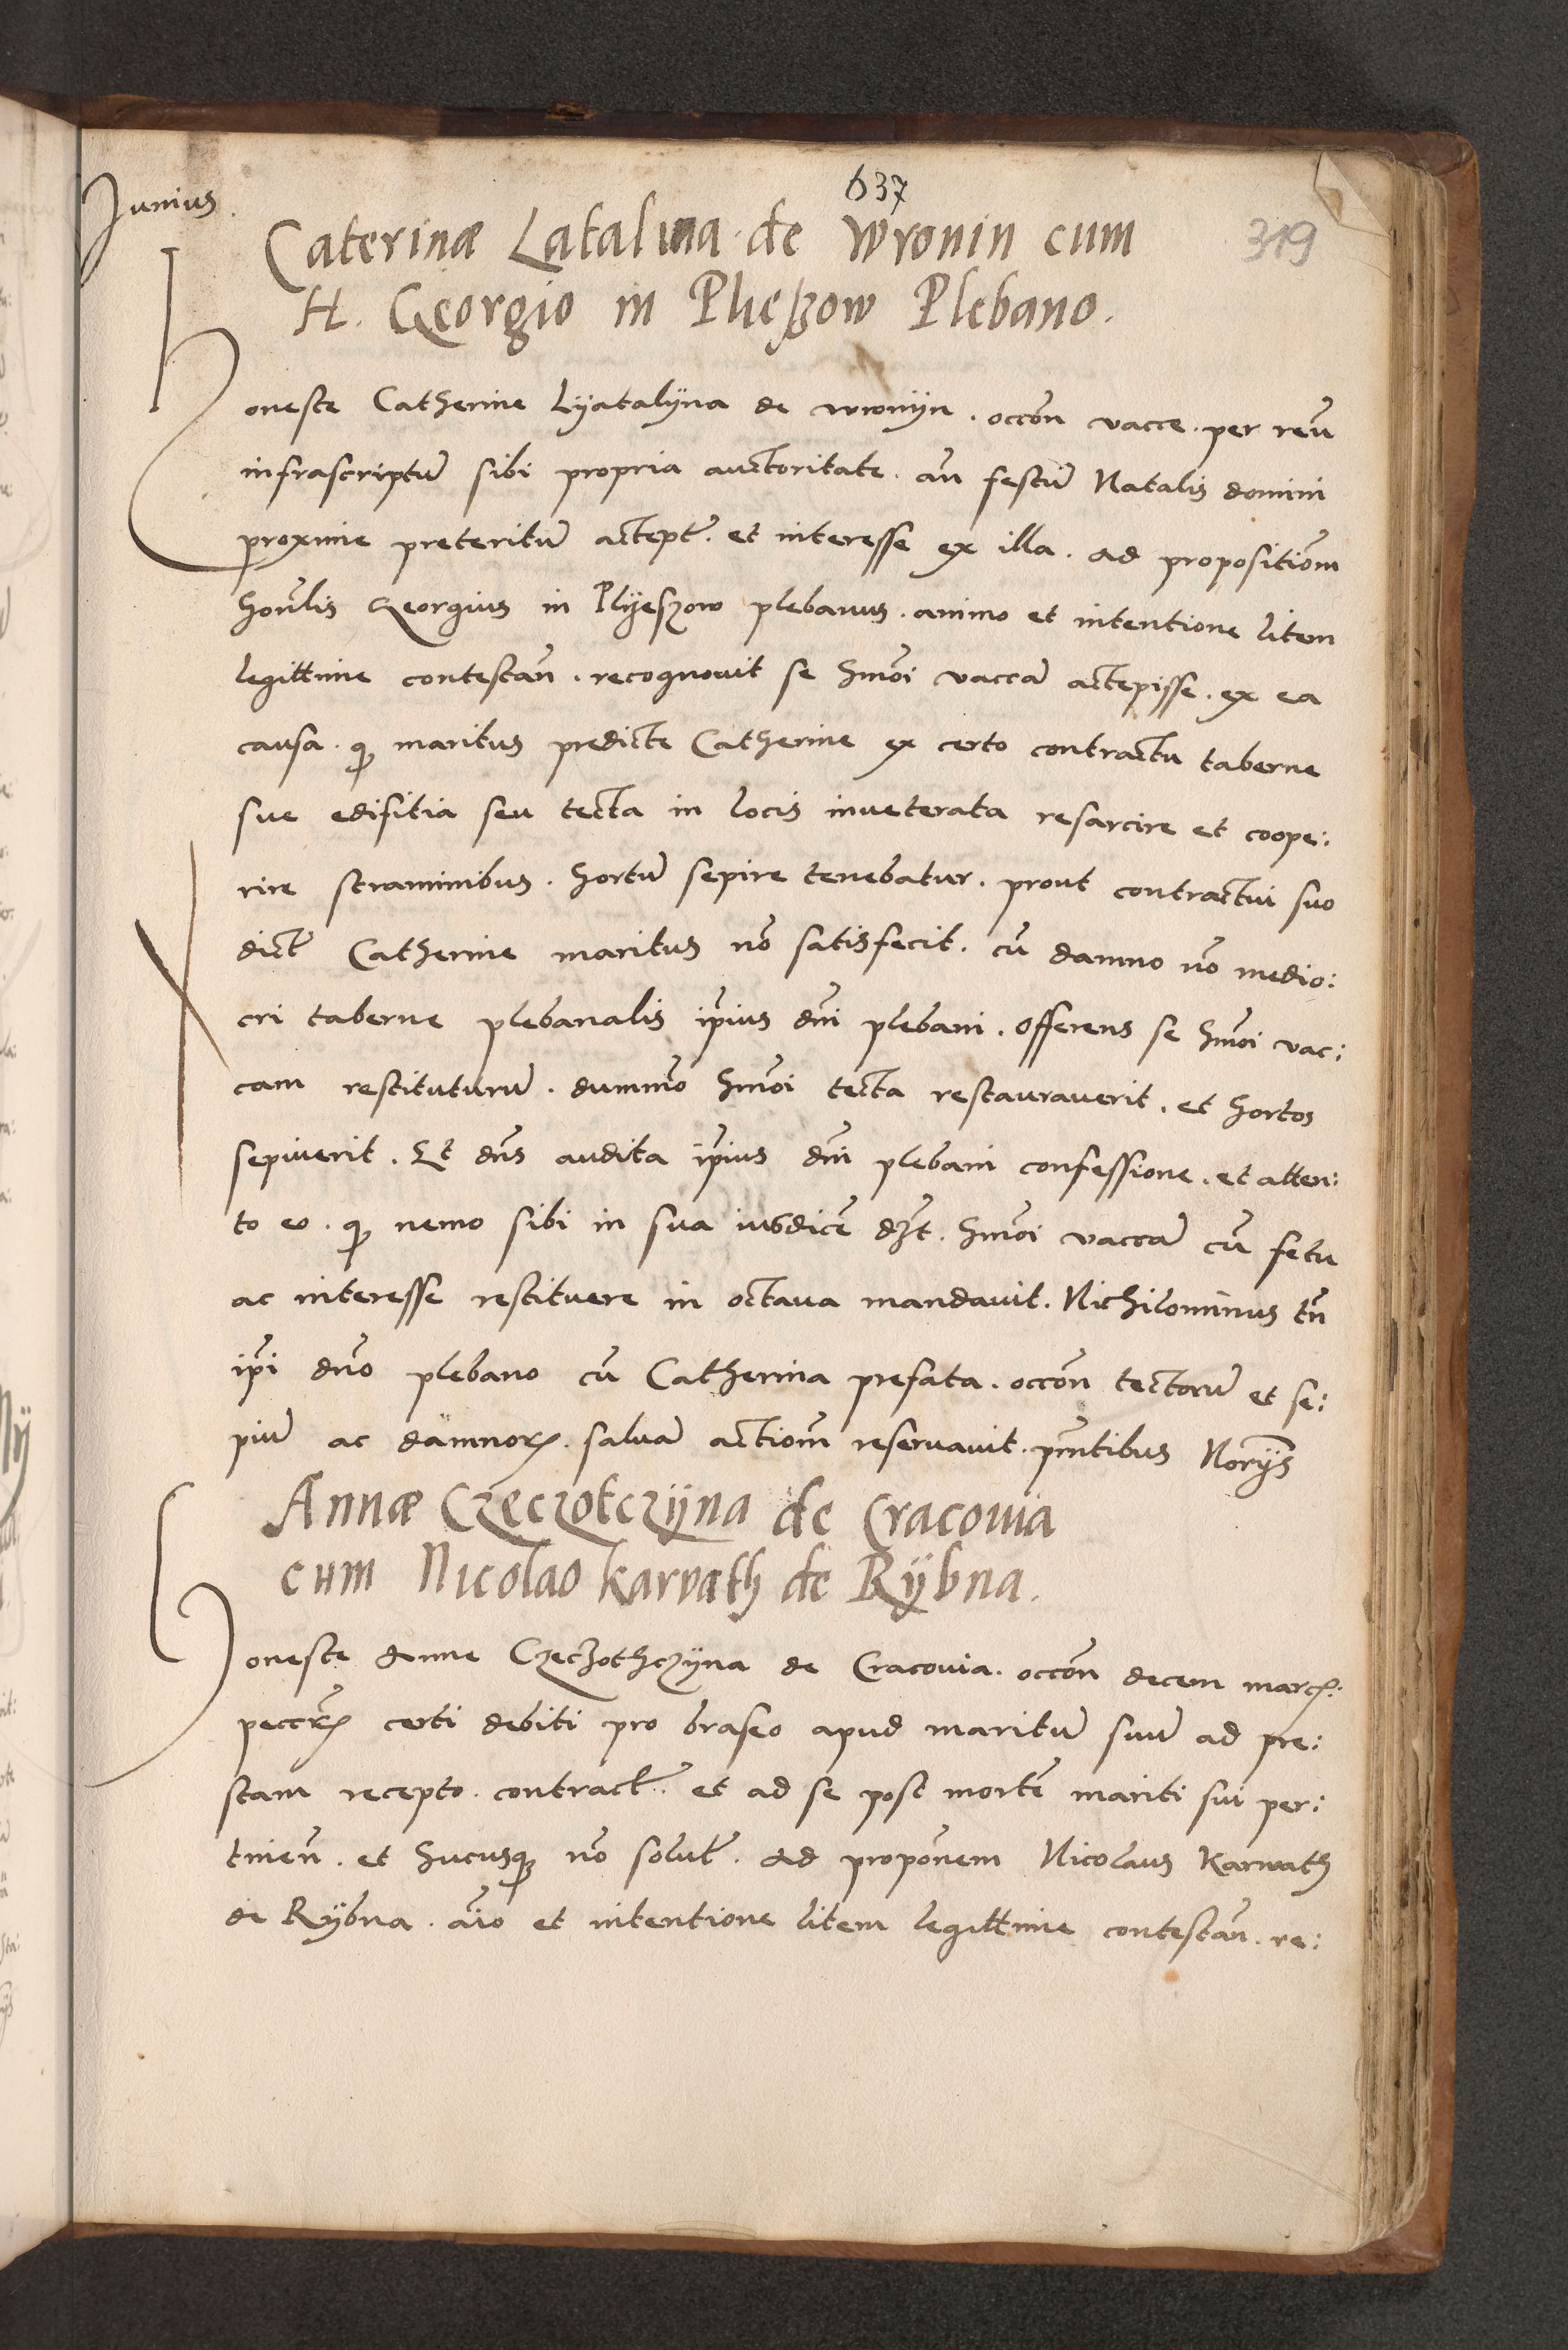 Junius.
637
319
Caterinæ Latalina de Wronin cum
H. Georgio in Plieszow Plebano.
Honeste Catherine Lÿatalÿna de wronÿn. occoñ vacce. per reũ
infrascriptũ sibi propria auctoritate. añ festũ Natalis domini
proxime preteritũ accept̃. et interesse ex illa. ad propositioñm
hoñlis Georgius in Plÿeszow plebanus. animo et intentione litem
legittime contestañ. recognouit se hmõi vaccã accepisse. ex ea
causa. qꝫ maritus predicte Catherine ex certo contractu taberne
sue edifitia seu tecta in locis inueterata resarcire et coope:
rire straminibus. hortũ sepire tenebatur. prout contractui suo
dict̃ Catherine maritus nõ satisfecit. cũ damno nõ medio:
cri taberne plebanalis ip̃ius dñi plebani. offerens se hmõi vac:
cam restituturũ. dummõ hmõi tecta restauraverit. et hortos
sepiuerit. Et dñs audita ip̃ius dñi plebani confessione. et atten:
to eo. qꝫ nemo sibi in sua ius dicẽ dꝫt. hmõi vaccã cũ fetu
ac interesse restituere in octaua mandauit. Nichilominus tñ
ip̃i dño plebano cũ Catherina prefata. occoñ tectorũ et se:
piũ ac damnoꝝ. saluã actioñm reseruauit. pñntibus Norÿs
Annæ Czeczotczÿna de Cracouia
cum Nicolao karvath de Rÿbna.
Honeste Anne Czeczothczÿna de Cracouia. occoñ decem marcꝝ.
peccꝝ certi debiti pro braseo apud maritũ suũ ad pre:
stam recepto. contract̃. et ad se post mortẽ mariti sui per:
tineñ. et hucusqꝫ nõ solut̃. ad propoñem Nicolaus Karwath
de Rÿbna. aĩo et intentione litem legittime contestañ. re: